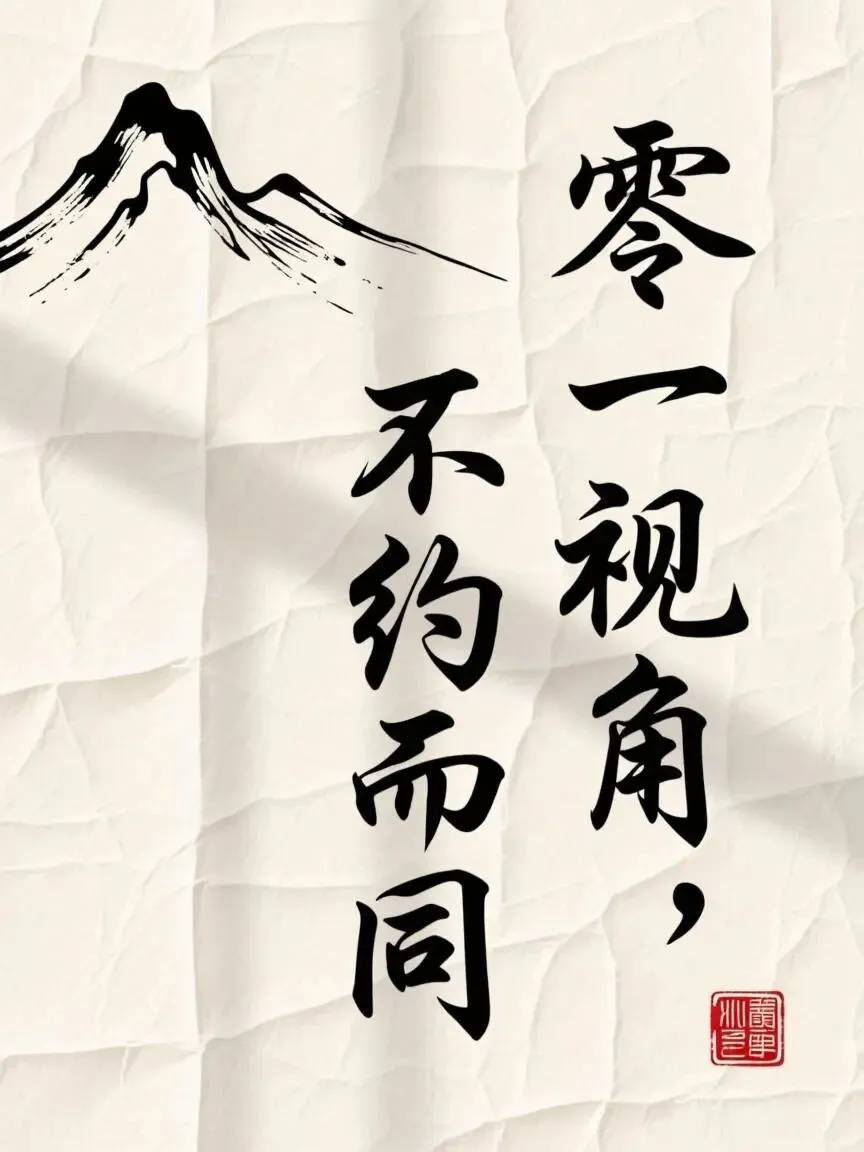 零一视角，
不约而同